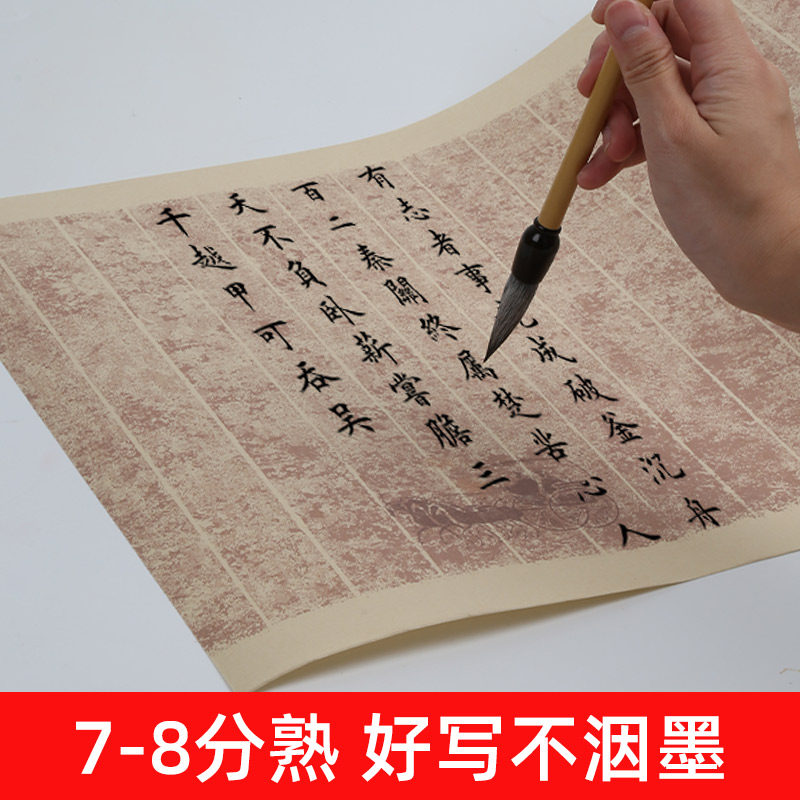 有志者事成破釜沉舟
百二秦關終属楚苦心人
天不負卧薪嘗膽三
千越甲可吞吴
7-8分熟 好写不洇墨